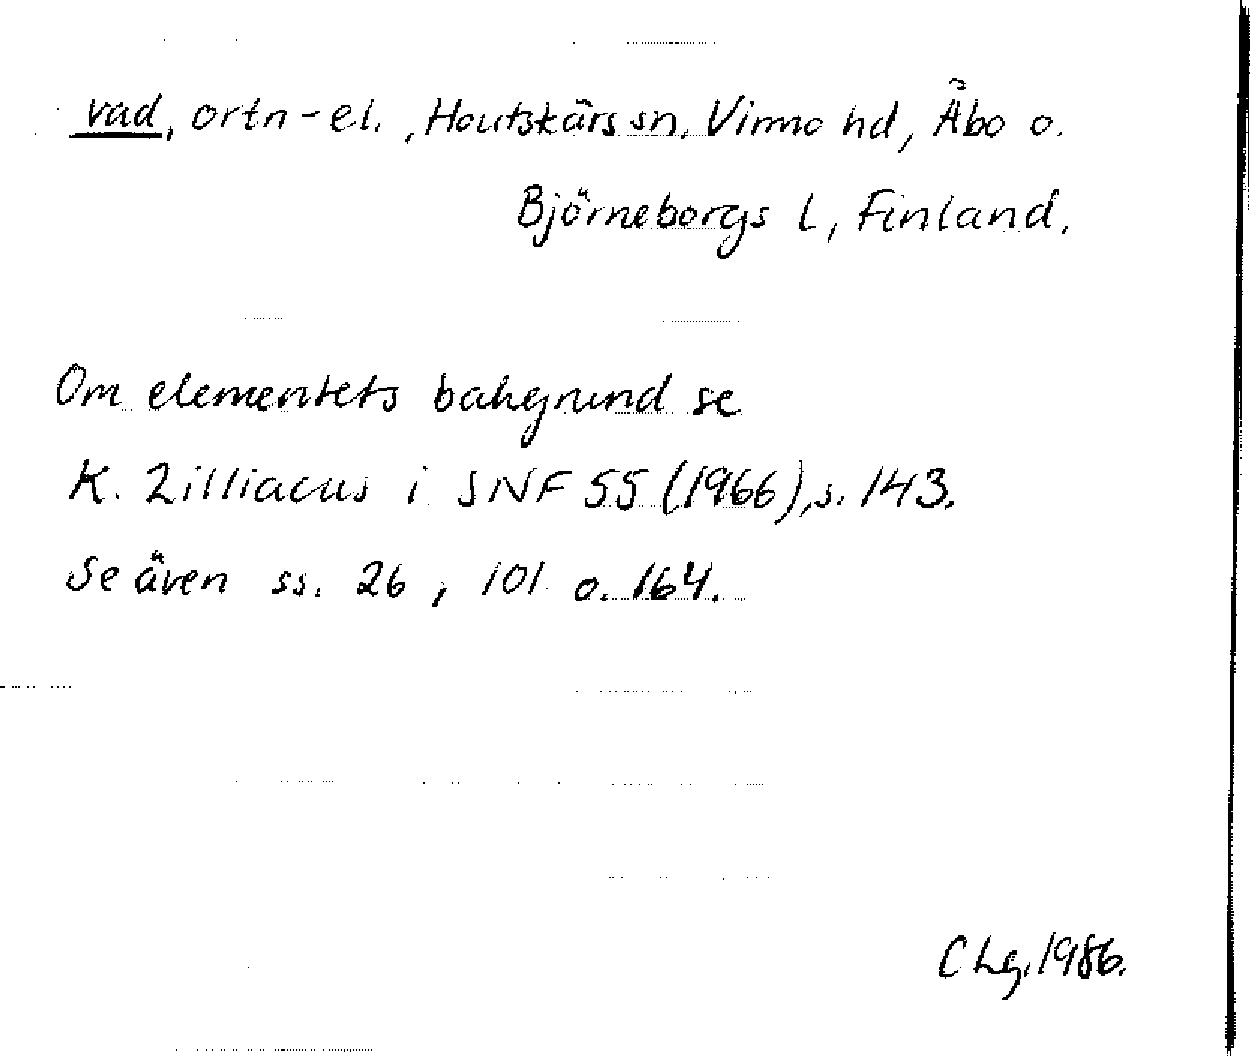 vad, ortn-el., Houtskärs sn, Virmo hd, Åbo o.
Björneborgs l, Finland.
Om elementets bakgrund se
K. Zilliacus i SNF 55 (1966), s. 143.
Se även ss. 26, 101 o. 164.
CLg. 1986.